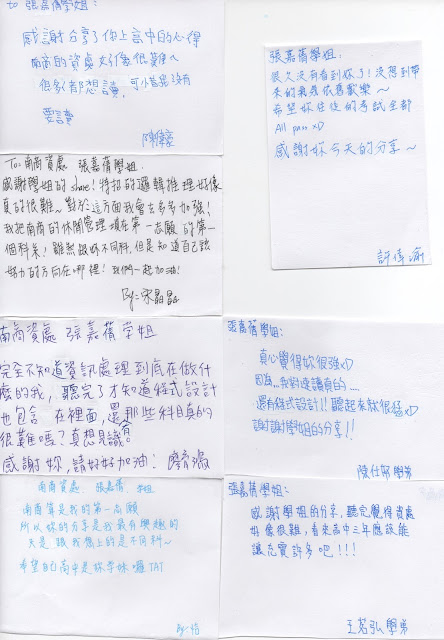 to 張嘉蒨學姐：
感謝分享了你上高中的心得
南商的資處好像很難ㄟ
但
都想讀，可
沒有
要讀
To: 南商資處 張嘉蒨學姐.
感謝學姐的 share! 特招的邏輯推理好像
真的很難~ 對於這方面我會去多多加強!
我把南商的休閒管理填在第一志願的第一
個科系! 雖然跟妳不同科，但是知道自己該
努力的方向在哪裡! 我們一起加油!
By: 宋晶晶
南商資處 張嘉蒨學姐
完全不知道資訊處理到底在做什
麼的我，聽完了才知道程式設計
也包含在裡面，還有那些科目真的
很難嗎？真想見識。
感謝妳，請好好加油!
南商資處 張嘉蒨 學姐
南商算是我的第一志願
所以妳的分享是我最有興趣的
只是跟我想上的是不同科~
希望自己高中是妳學妹囉 TAT
By: 怡
張嘉蒨學姐：
很久沒有看到妳了! 沒想到帶
來的氣氛依舊歡樂~
希望妳往後的考試全部
All pass xD
感謝妳今天的分享~
許倖瑜
張嘉蒨學姐：
真心覺得妳很強xD
因為...我的速讀真的....
還有程式設計!! 聽起來就很猛xD
謝謝學姐的分享!!
陳仕
學弟
張嘉蒨學姐：
感謝學姐的分享，聽完覺得資處
好像很難，看來高中三年應該能
讓充實許多吧!!!
王茗弘 學弟